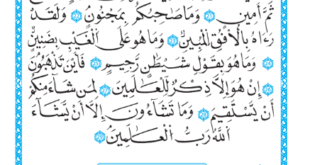 ثَمَّ أَمِينٍ ۝ وَمَا صَاحِبُكُم بِمَجْنُونٍ ۝ وَلَقَدْ
رَءَاهُ بِالْأُفُقِ الْمُبِينِ ۝ وَمَا هُوَ عَلَى الْغَيْبِ بِضَنِينٍ
۝ وَمَا هُوَ بِقَوْلِ شَيْطَانٍ رَّجِيمٍ ۝ فَأَيْنَ تَذْهَبُونَ
۝ إِنْ هُوَ إِلَّا ذِكْرٌ لِّلْعَالَمِينَ ۝ لِمَن شَاءَ مِنكُمْ
أَن يَسْتَقِيمَ ۝ وَمَا تَشَاءُونَ إِلَّا أَن يَشَاءَ
اللَّهُ رَبُّ الْعَالَمِينَ ۝